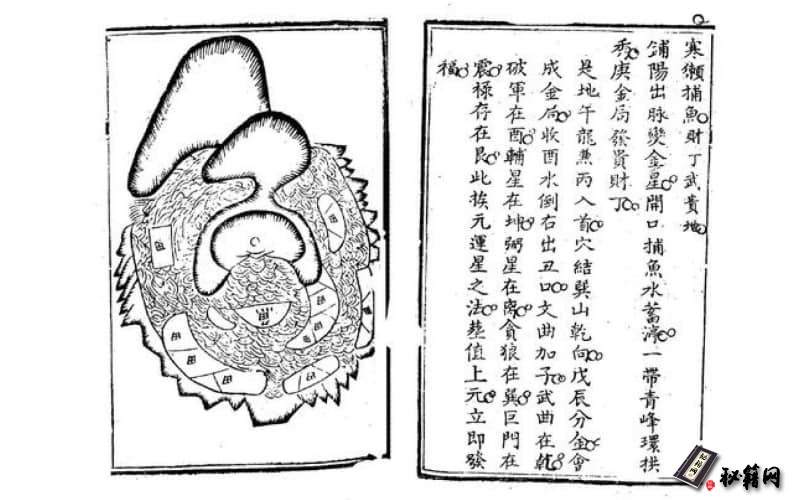 寒獺捕魚財丁武貴地
鋪陽出脉變金星開口捕魚水蓄濟一帶青峰環拱
秀庚金局發貴財丁
是地午龍𠔥丙入首穴結巽山乾向戊辰分金會
成金局收酉水倒右出丑口文曲加子武曲在乾
破軍在酉輔星在坤弼星在离貪狼在巽巨門在
震祿存在艮此挨元運星之法塟值上元立即發
福
田
田
田
田
田
田
田
田
田
秘籍网